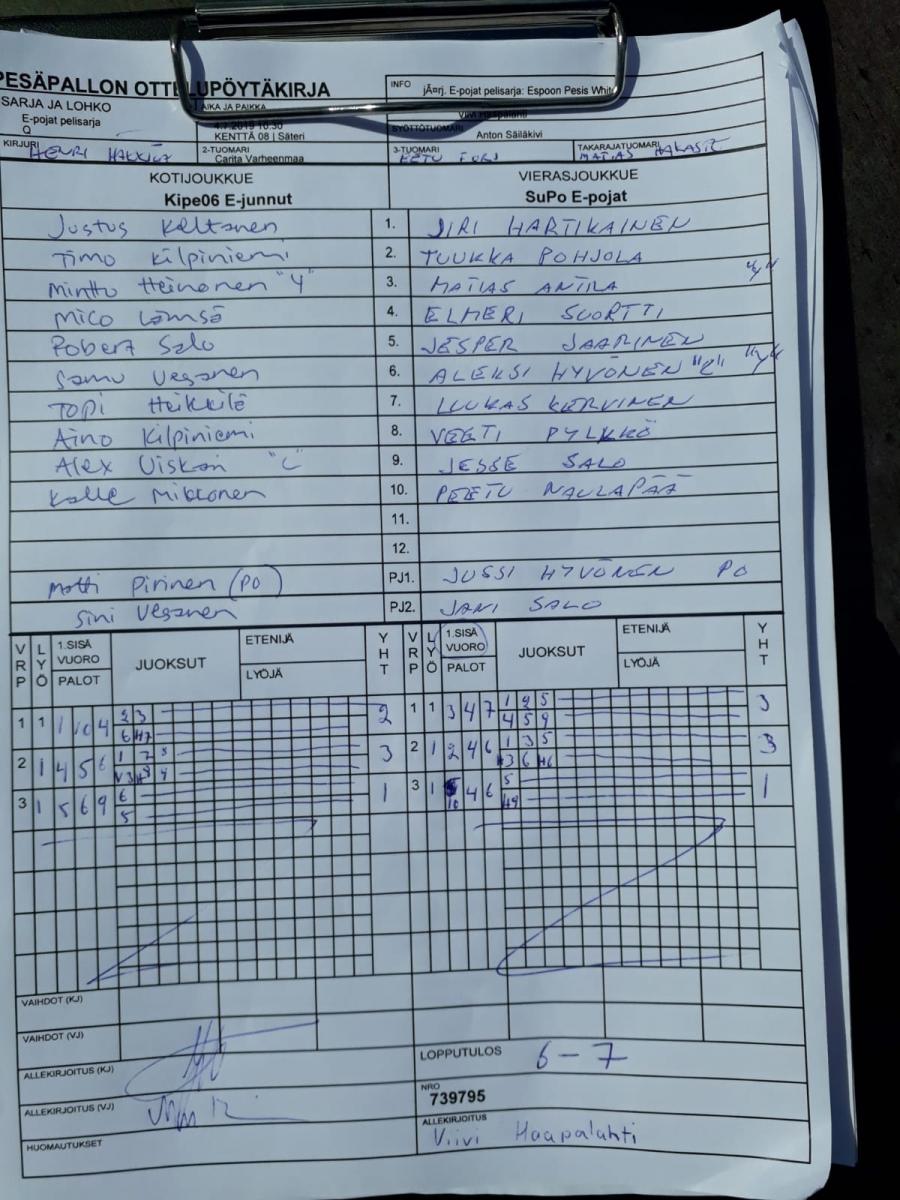 PESÄPALLON OTTELUPÖYTÄKIRJA
INFO jÃ¤rj. E-pojat pelisarja: Espoon Pesis Whit
SARJA JA LOHKO
E-pojat pelisarja
Q
AIKA JA PAIKKA
4.7.2019 10:30
KENTTÄ 08 | Säteri
Viivi Haapalahti
SYÖTTÖTUOMARI Anton Säiläkivi
KIRJURI HENRI
2-TUOMARI
Carita Varheenmaa
3-TUOMARI EETU
TAKARAJATUOMARI MATIAS
KOTIJOUKKUE VIERASJOUKKUE
Kipe06 E-junnut SuPo E-pojat
Justus Keltanen 1. JIRI HARTIKAINEN
Timo Kilpiniemi 2. TUUKKA POHJOLA
Minttu Heinonen "Y" 3. MATIAS ANTILA "Y"
Mico Lämsä 4. ELMERI SUORTTI
Robert Salo 5. JESPER JAARINEN
Samu Vesanen 6. ALEKSI HYVÖNEN "C" "Y"
Topi Heikkilä 7. LUUKAS KERVINEN
Aino Kilpiniemi 8. VEETI PYLKKÖ
Alex "C" 9. JESSE SALO
Kalle Mikkonen 10. PEETU NAULAPÄÄ
11.
12.
Matti Pirinen (PO) PJ1. JUSSI HYVÖNEN PO
Sini Vesanen PJ2. JANI SALO
VRP LYÖ 1.SISÄ VUORO PALOT JUOKSUT ETENIJÄ LYÖJÄ YHT VRP LYÖ 1.SISÄ VUORO PALOT JUOKSUT ETENIJÄ LYÖJÄ YHT
1 1 1 10 4 2 3 2 1 1 3 4 7 1 2 5 3
6 H7 4 5 9
2 1 4 5 6 1 7 3 2 1 2 4 6 1 3 5 3
H3 6 H6
3 1 5 6 9 6 1 3 1 10 4 6 5 1
5 H9
VAIHDOT (KJ)
VAIHDOT (VJ)
LOPPUTULOS 6 - 7
ALLEKIRJOITUS (KJ)
NRO
739795
ALLEKIRJOITUS (VJ)
ALLEKIRJOITUS
Viivi Haapalahti
HUOMAUTUKSET